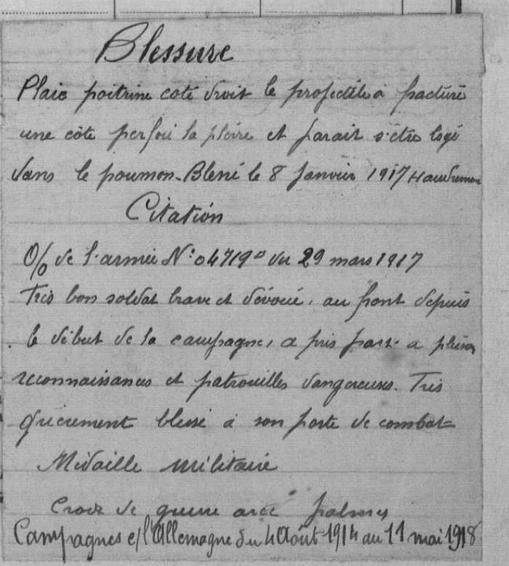 Blessure
Plaie poitrine coté droit le projectile a facturé
une côte perforé la plèvre et parait s'être logé
dans le poumon. Blessé le 8 Janvier 1917
Citation
O/o de l'armée N° 04719D du 29 mars 1917
Très bon soldat brave et dévoué, au front depuis
le début de la campagne, a pris part a plusieurs
reconnaissances et patrouilles dangereuses. Très
grièvement blessé à son poste de combat
Médaille militaire
Croix de guerre avec palmes
Campagnes c/ l'Allemagne du 4 Août 1914 au 11 mai 1918